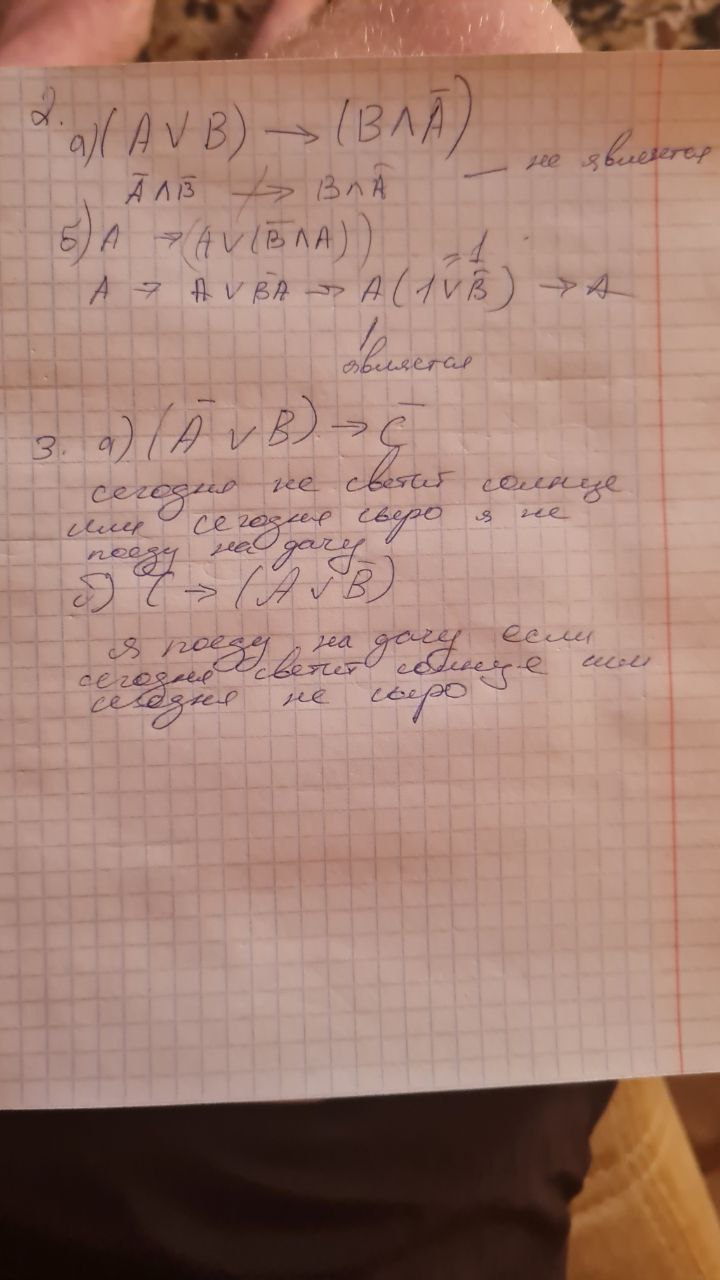 2.
а) (A ∨ B) → (B ∧ Ā)
Ā ∧ B̄ ↛ B ∧ Ā — не является
б) A → (A ∨ (B̄ ∧ A))
= 1
A → A ∨ B̄A → A (1 ∨ B̄) → A
является
3. а) (Ā ∨ B) → C̄
сегодня не светит солнце
или сегодня сыро я не
поеду на дачу
б) C → (A ∨ B̄)
я поеду на дачу если
сегодня светит солнце или
сегодня не сыро